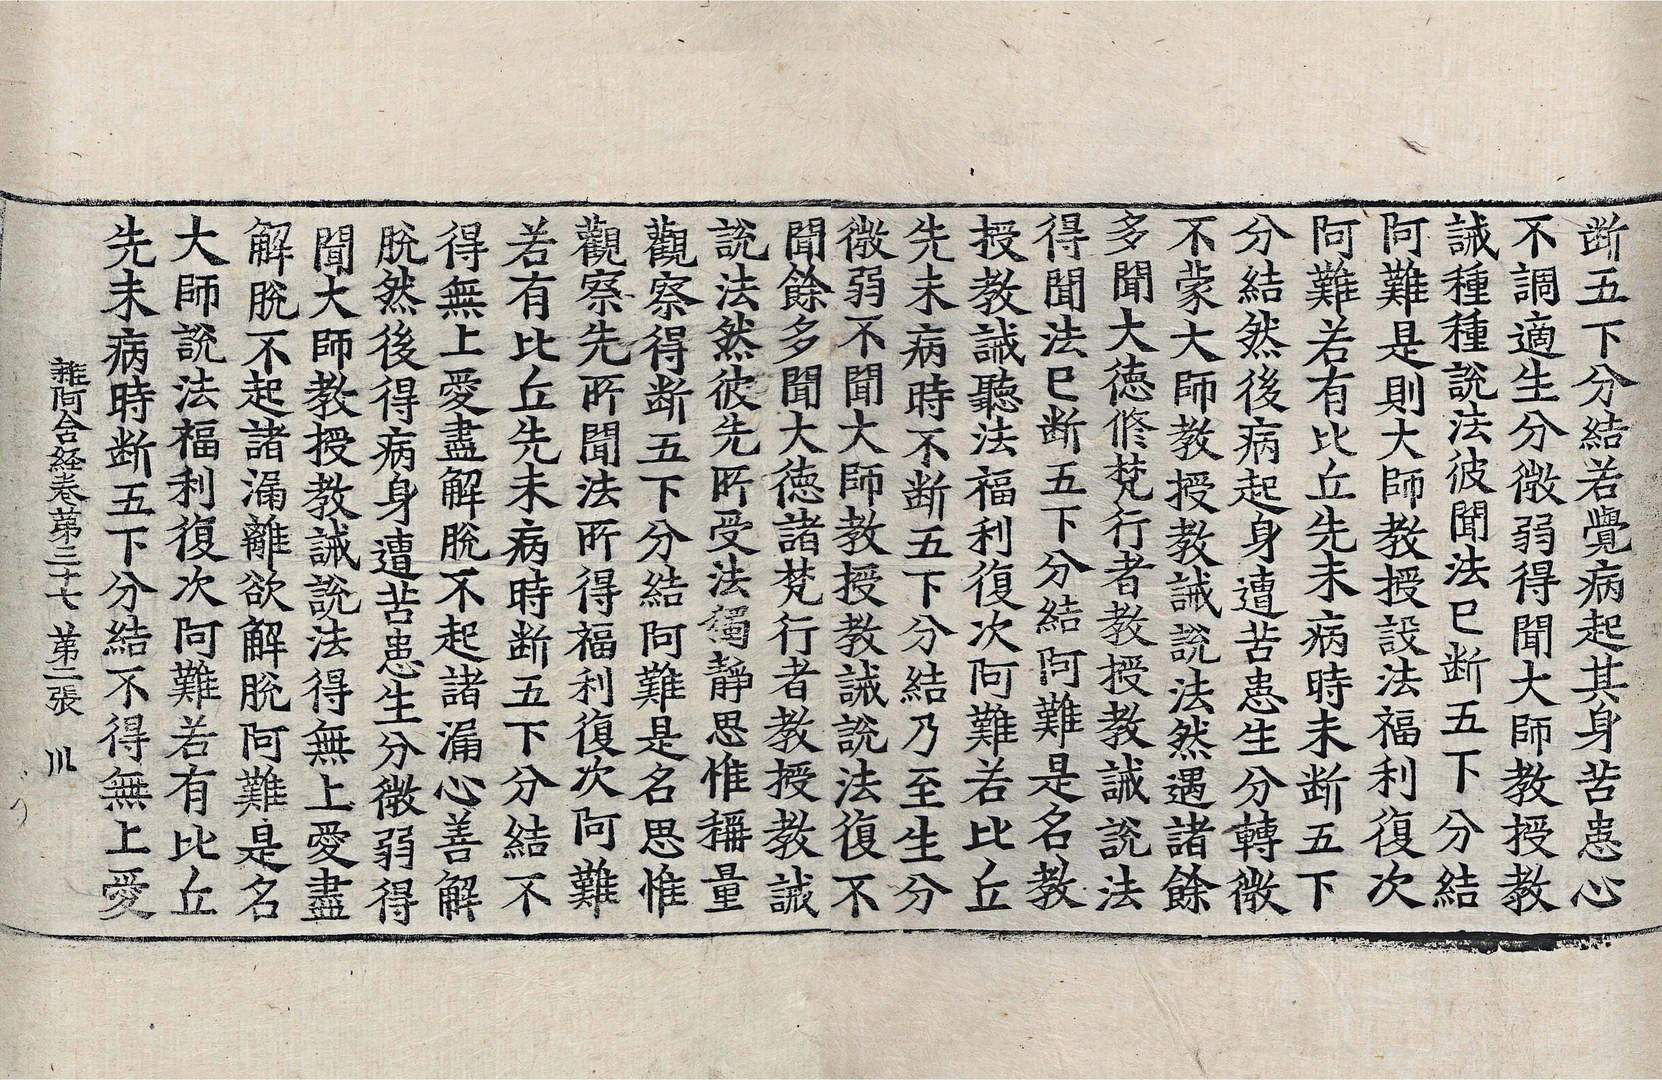 断五下分結若覺病起其身苦患心
不調適生分微弱得聞大師教授教
誡種種說法彼聞法已断五下分結
阿難是則大師教授設法福利復次
阿難若有比丘先未病時未断五下
分結然後病起身遭苦患生分轉微
不蒙大師教授教誡說法然遇諸餘
多聞大德修梵行者教授教誡說法
得聞法已断五下分結阿難是名教
授教誡聽法福利復次阿難若比丘
先未病時不断五下分結乃至生分
微弱不聞大師教授教誡說法復不
聞餘多聞大德諸梵行者教授教誡
說法然彼先所受法獨靜思惟稱量
觀察得断五下分結阿難是名思惟
觀察先所聞法所得福利復次阿難
若有比丘先未病時断五下分結不
得無上愛盡解脫不起諸漏心善解
脫然後得病身遭苦患生分微弱得
聞大師教授教誡說法得無上愛盡
解脫不起諸漏離欲解脫阿難是名
大師說法福利復次阿難若有比丘
先未病時断五下分結不得無上愛
雜阿含経卷第三十七 第二張 川